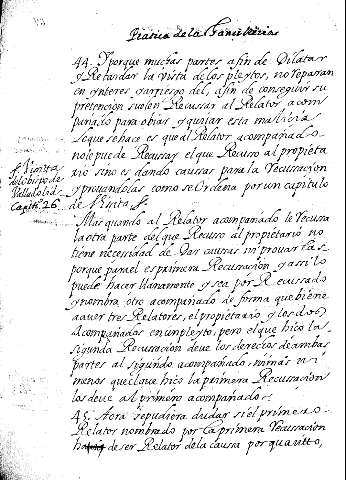 Practica de la Chancilleria
44. Y porque muchas partes afin de Dilatar
y Retardar la vista de los pleytos, no reparan
en ynteres y arriesgo del, afin de conseguir su
pretencion suelen Recussar al Relator acom
pañado para obiar, y quitar esta malicia
lo que se hace es que al Relator acompañado
nole puede Recusar el que Recuso al propieta
rio sino es dando causas para la Recussacion
y provandolas, como se ordena por un capitulo
de Visita f.
f. Visita
Valladolid
Capit. 26
Mas quando al Relator acompañado le Recussa
la otra parte del que Recuso al propietario no
tiene necesidad de dar causas ni provar las
porque para el es primera Recusacion y assi lo
puede hacer llanamente y sea por Recussado
y nombra otro acompañado de forma que biene
a aver tres Relatores, el propietario y los dos
acompañados en un pleyto, pero el que hico la
segunda Recussacion deve los derechos de ambas
partes al segundo acompañado, ni mas ni
menos que el que hico la primera Recussacion
los deve al primero acompañado.
45. Aora se pudiera dudar si el primero
Relator nombrado por la primera Recussacion
ha de ser Relator de la causa por quanto,